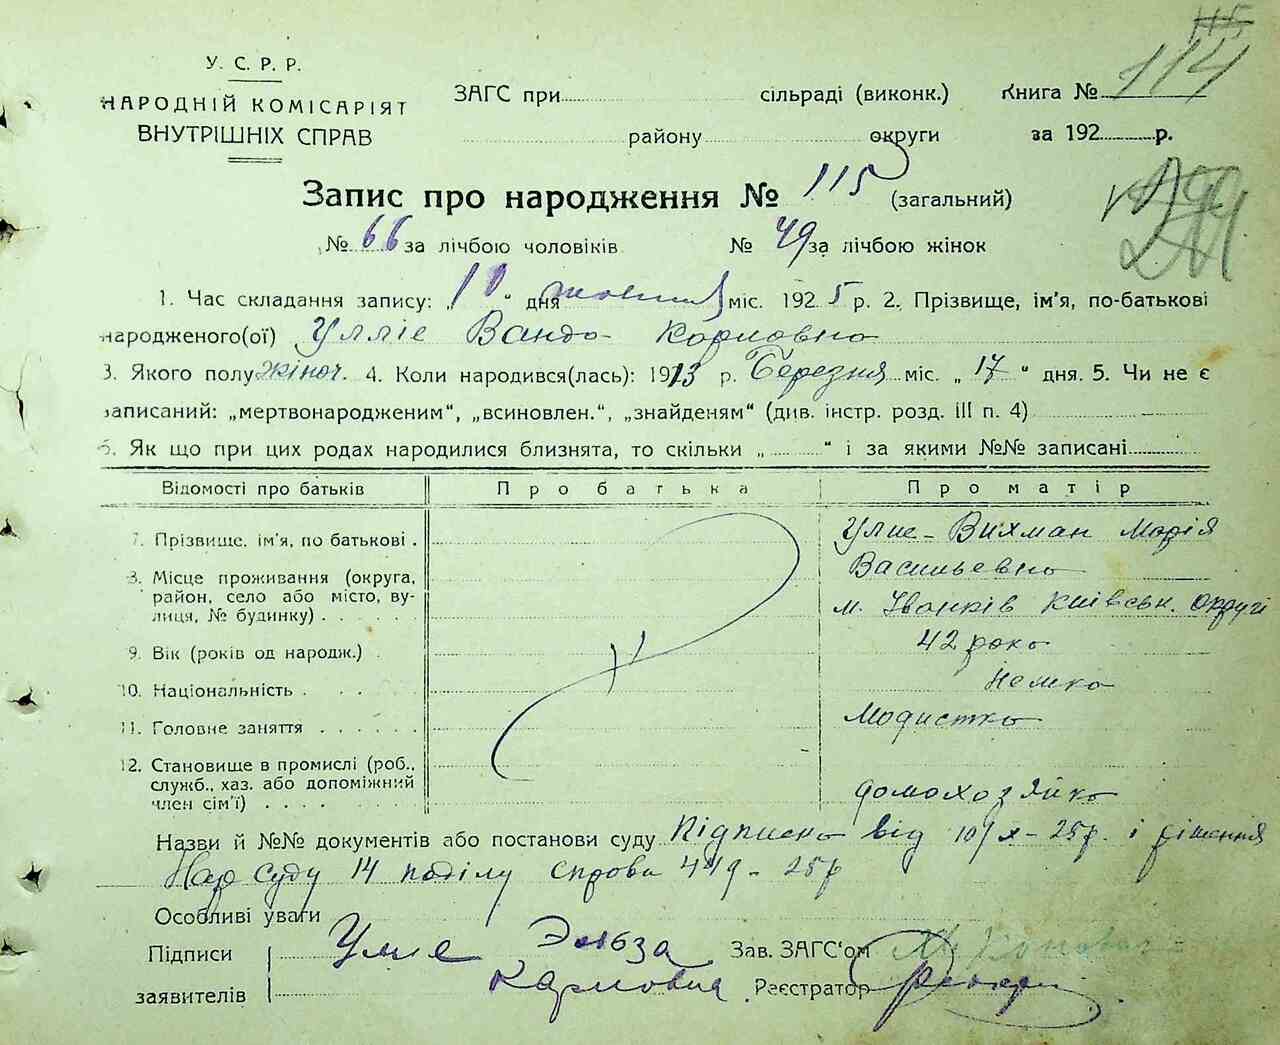 У. С. Р. Р.
НАРОДНІЙ КОМІСАРІЯТ
ВНУТРІШНІХ СПРАВ
ЗАГС при сільраді (виконк.) Книга №
району округи за 192 р.
114
Запис про народження № 115 (загальний)
№ 66 за лічбою чоловіків № 49 за лічбою жінок
1. Час складання запису: „10“ дня жовтня міс. 1925 р. 2. Прізвище, ім’я, по-батькові
народженого(ої) Улліе Ванда Карловна
3. Якого полу жіноч. 4. Коли народився(лась): 1913 р. Березня міс. „17“ дня. 5. Чи не є
записаний: „мертвонародженим“, „всиновлен.“, „знайденям“ (див. інстр. розд. III п. 4)
6. Як що при цих родах народилися близнята, то скільки „ “ і за якими №№ записані
Відомості про батьків Про батька Про матір
7. Прізвище, ім’я, по батькові . Улие-Вихман Марія
Васильевна
8. Місце проживання (округа,
район, село або місто, ву-
лиця, № будинку) . м. Іванків Київськ. округі
9. Вік (років од народж.) . 42 рока
10. Національність . Немка
11. Головне заняття . Модистка
12. Становище в промислі (роб.,
служб., хаз. або допоміжний
член сім’ї) . домохозяйка
Назви й №№ документів або постанови суду Підписка від 10/X-25р. і рішення
Нар суду 14 поділу справа 449-25р
Особливі уваги
Підписи Улие Эльза Зав. ЗАГС‘ом
заявителів Карловна Реєстратор